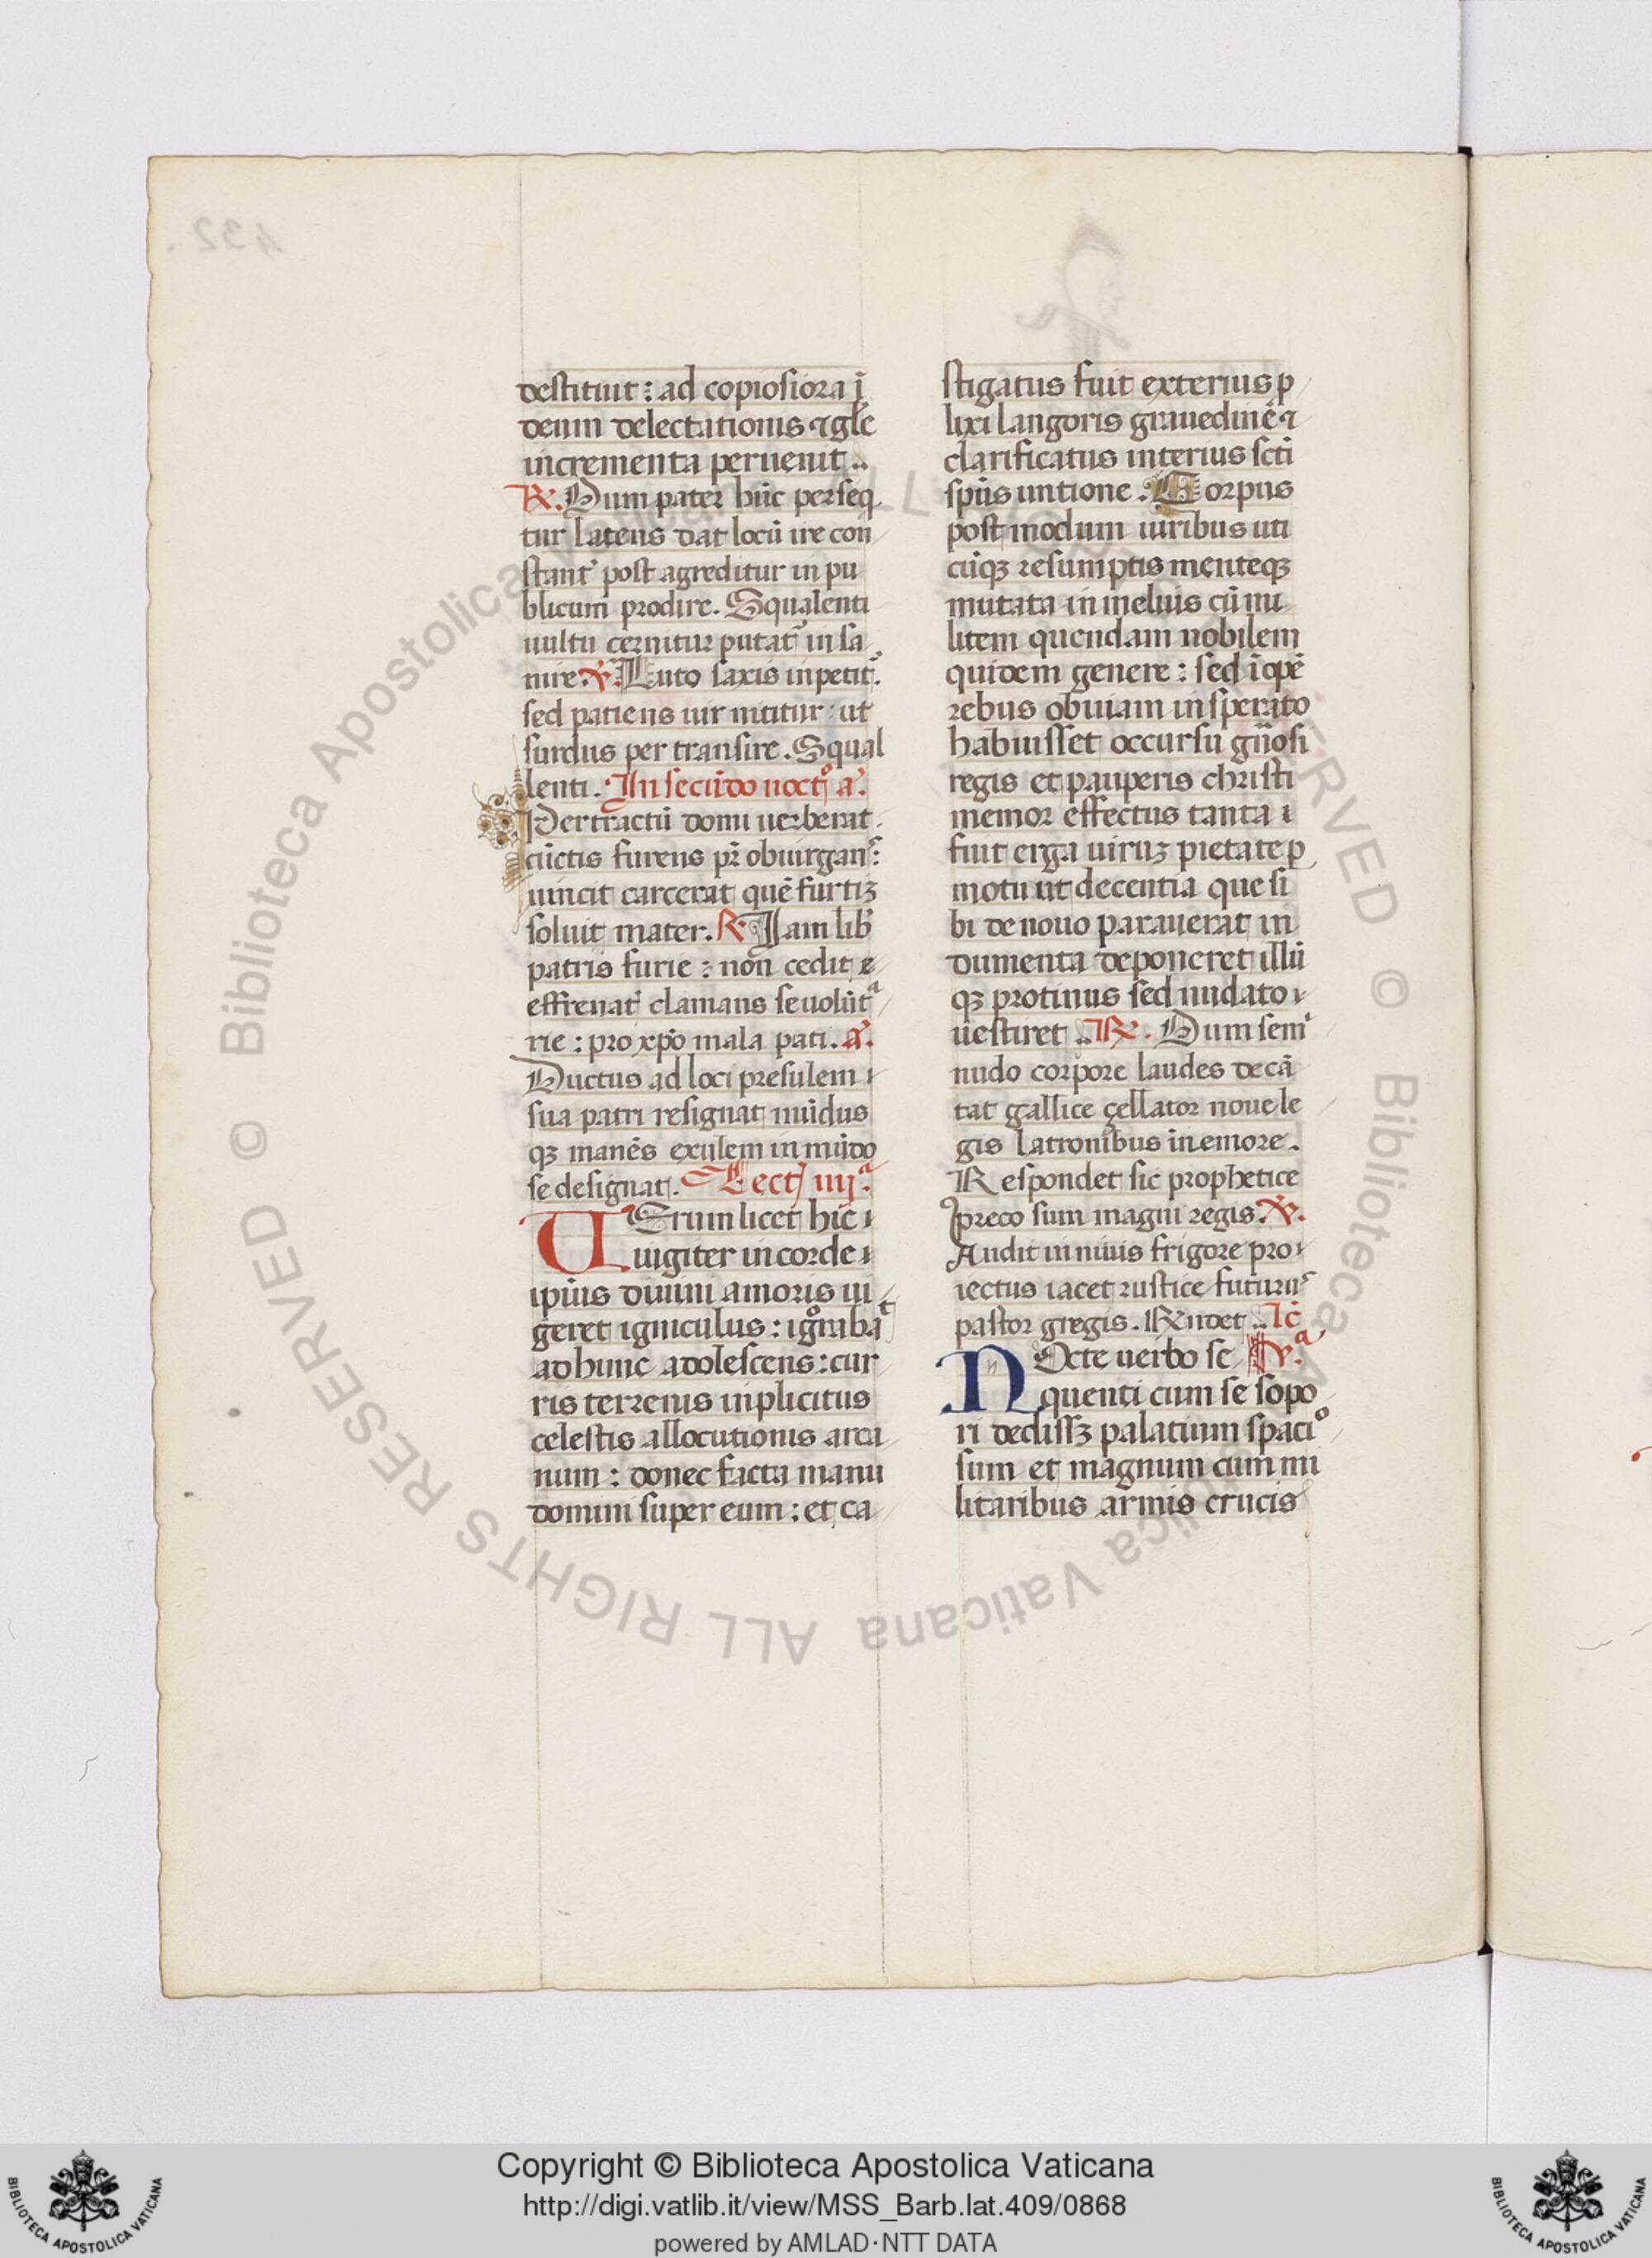 destituit : ad copiosiora i
deum delectationis ⁊ gl̄e
incrementa peruenit ..
℟. Dum pater hūc perseq̄
tur latens dat locū ire con
stant᷑ post agreditur in pu
blicum prodire. Squalenti
uultu cernitur putat᷑ in sa
nire. ℣. Luto saxis inpetit᷑.
sed patiens uir nititur : ut
surdus per transire. Squal
lenti. In secūdo noct᷑o a᷑.
Pertractū domi uerberat
cūctis furens pr̄ obiurgans :
uincit carcerat quē furtiꝫ
soluit mater. ℟ Jam lib᷑
patris furie : non cedit
effrenat᷑ clamans se uolūta
rie : pro xp̄o mala pati. a᷑.
Ductus ad loci presulem
sua patri resignat nūdus
qꝫ manēs exulem in mūdo
se designat. Lectj iiij.ᵃ
UErum licet hic
uigiter in corde
ip̄ius diuini amoris ui
geret igniculus : ignᵒrabaᵗ
adhunc adolescens : cur
ris terrenis inplicitus
celestis allocutionis arca
num : donec facta manu
domini super eum : et ca
stigatus fuit exterius p
lixi langoris grauedinē ⁊
clarificatus interius scti
sp̄us untione. Corpus
post modum uiribus uti
cūqꝫ resumptis menteqꝫ
mutata in melius cū mi
litem quendam nobilem
quidem genere : sed īopē
rebus obuiam insperato
habuisset occursu gn̄osi
regis et pauperis christi
memor effectus tanta
fuit erga uiruꝫ pietate p
motu ut decentia que si
bi de nouo parauerat in
dumenta deponeret illū
qꝫ protinus sed nudato
uestiret .. ℟. Dum semi
nudo corpore laudes decā
tat gallice çellator noue le
gis latronibus in emore.
Respondet sic prophetice
preco sum magni regis. ℣.
Audit in niuis frigore pro
iectus iacet rustice futurus
pastor gregis. Rn̄det .. lc̄
NOcte uerbo se v.ᵃ
quenti cum se sopo
ri dedissꝫ palatium spaciᵒ
sum et magnum cum mi
litaribus armis crucis
Copyright © Biblioteca Apostolica Vaticana
http://digi.vatlib.it/view/MSS_Barb.lat.409/0868
powered by AMLAD·NTT DATA